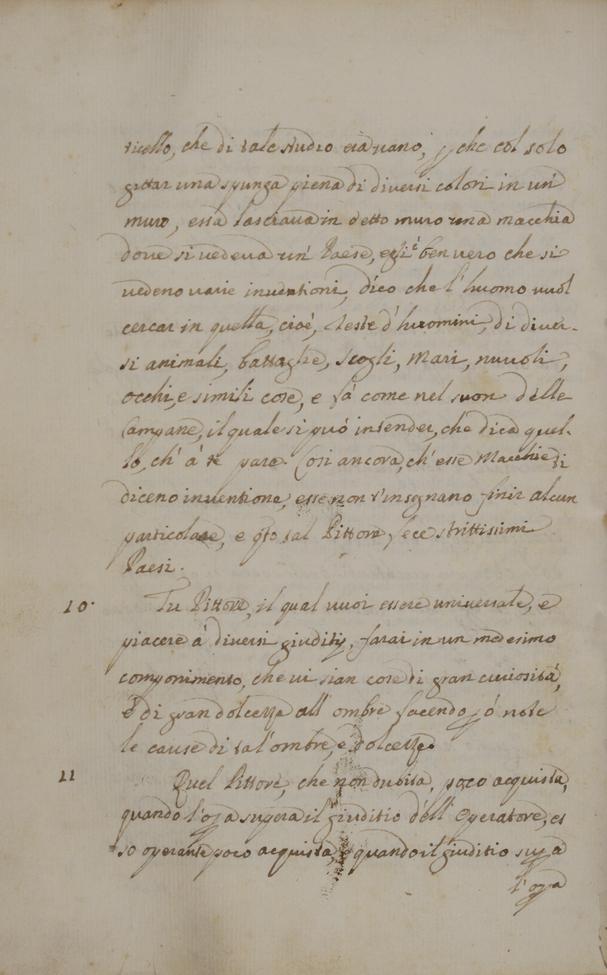 ticello, che di tale studio era vano, p che col solo
gittar una spunga piena di diversi colori in un
muro, essa lasciava in detto muro una macchia
dove si vedeva un Paese, egli è ben vero che si
vedeno varie inventioni, dico che l'huomo vuol
cercar in quella, cioè, Teste d'huomini, di diver-
si animali, battaglie, scogli, Mari, nuvoli,
occhi, e simili cose, e fà come nel suon delle
Campane, il quale si può intender, che dica quel-
lo, ch' à te pare. Così ancora, ch' esse Macchie ti
diceno inventione, esse non t'insegnano finir alcun
particolare, e qto tal Pittore, fece strittissimi
Paesi.
10. Tu Pittore, il qual vuoi essere universale, e
piacere à diversi giuditij, farai in un medesimo
componimento, che vi sian cose di gran curiosità,
e di gran dolcezza all' ombre facendo pò note
le cause di tal'ombre, e dolcezze
11 Quel Pittore, che non dubita, poco acquista,
quando l'opa supera il giuditio dell' Operatore, es
so operante poco acquista, e quando il giuditio supa
l'opa